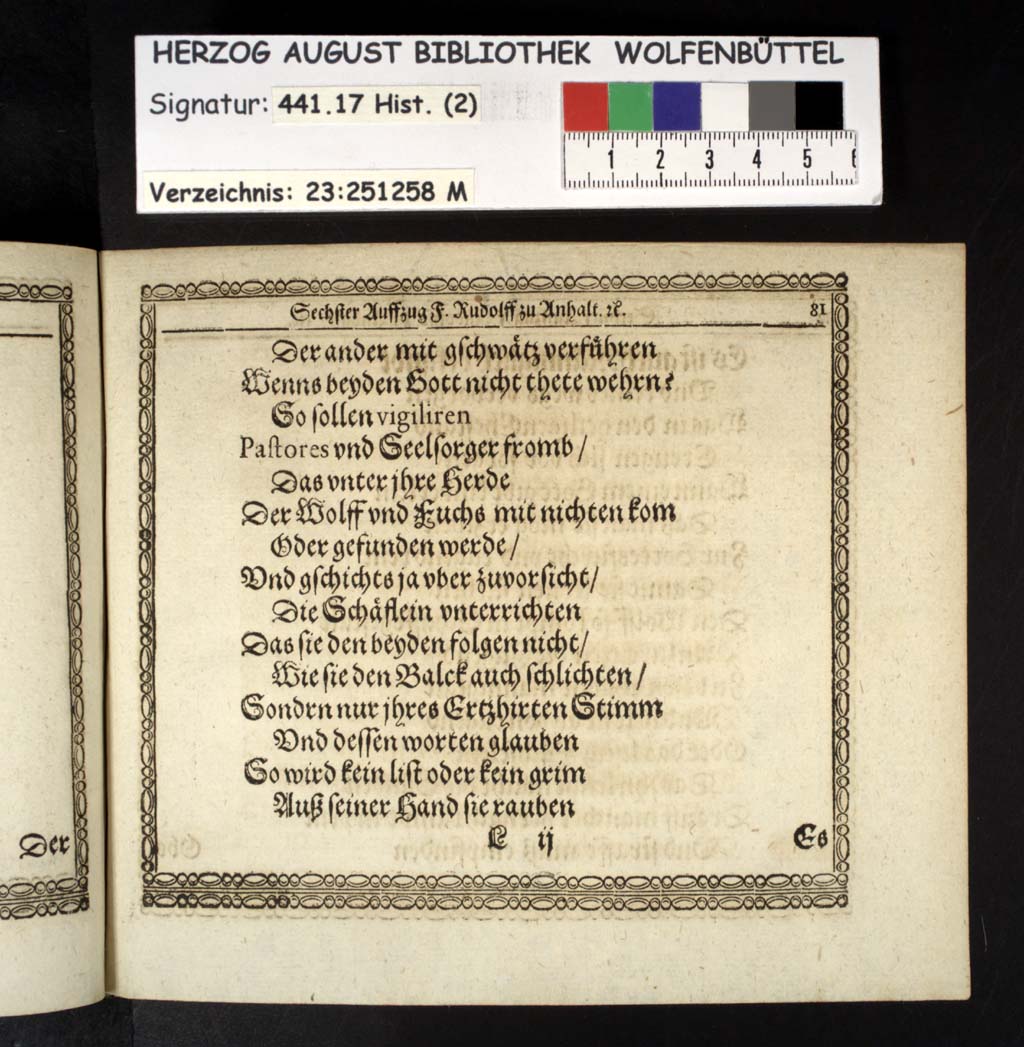 HERZOG AUGUST BIBLIOTHEK WOLFENBÜTTEL
Signatur: 441.17 Hist. (2)
1 2 3 4 5 6
Verzeichnis: 23:251258 M
Sechster Auffzug F. Rudolff zu Anhalt. ꝛc. 81
Der ander mit gschwätz verführen
Wenns beyden Gott nicht thete wehrn?
So sollen vigiliren
Pastores vnd Seelsorger fromb /
Das vnter jhre Herde
Der Wolff vnd Fuchs mit nichten kom
Oder gefunden werde /
Vnd gschichts ja vber zuvorsicht /
Die Schäflein vnterrichten
Das sie den beyden folgen nicht /
Wie sie den Balck auch schlichten /
Sondrn nur jhres Ertzhirten Stimm
Vnd dessen worten glauben
So wird kein list oder kein grim
Auß seiner Hand sie rauben
L ij Es
Der